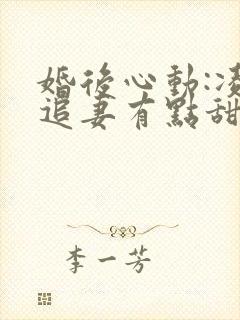 婚後心動:凌
追妻有點甜
李一芳